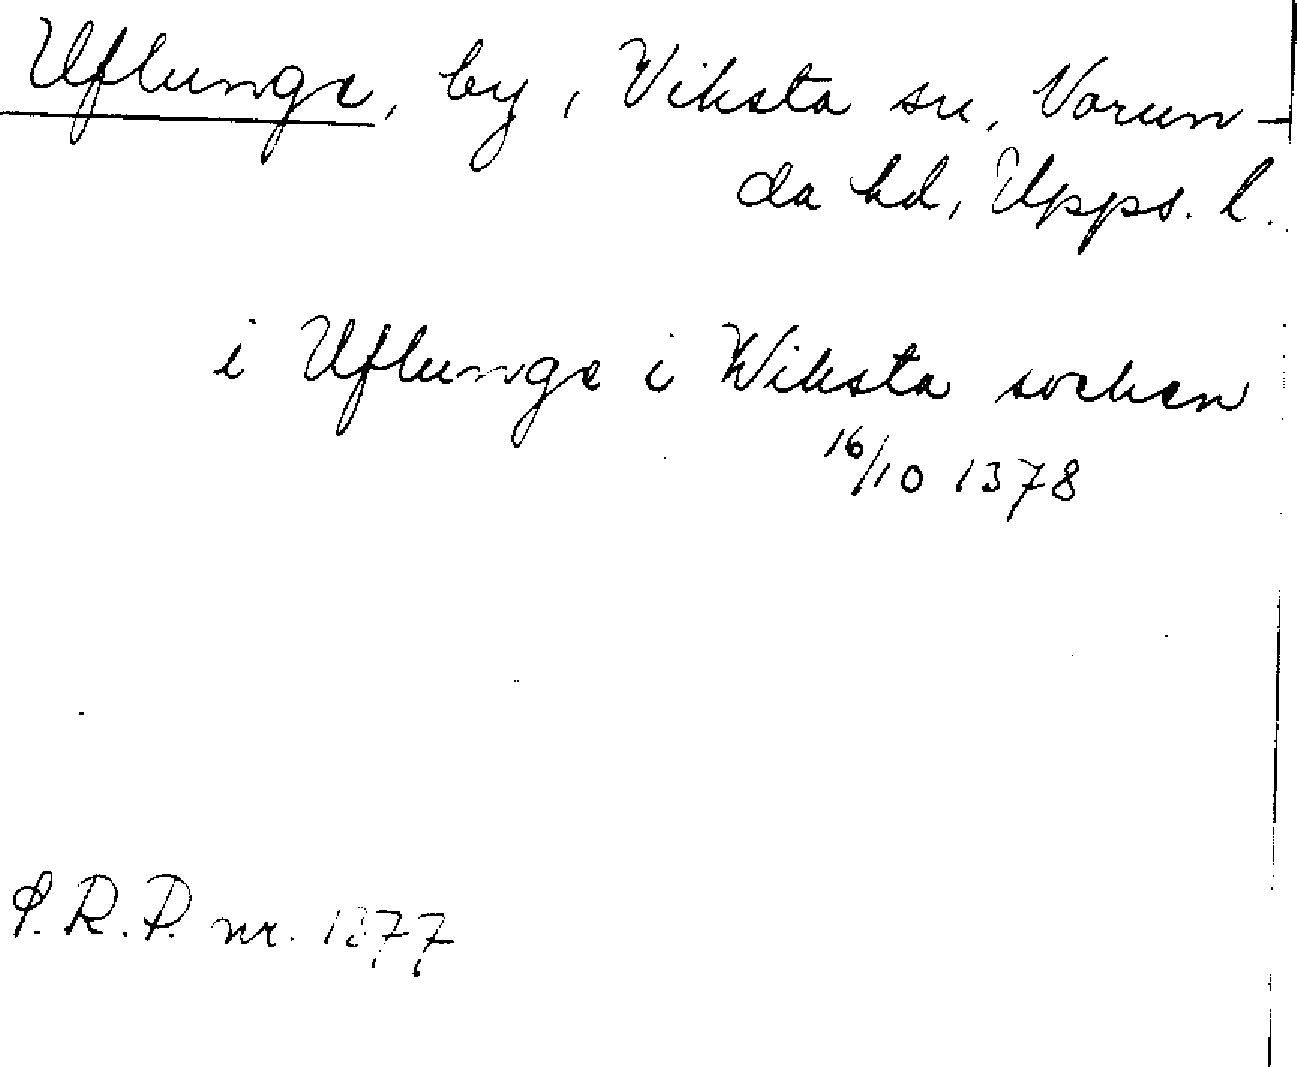 Uflunge, by, Viksta sn, Norun-
da hd, Upps. l.
i Uflunge i Wiksta sochen
16/10 1378
P.R.P. nr. 1377